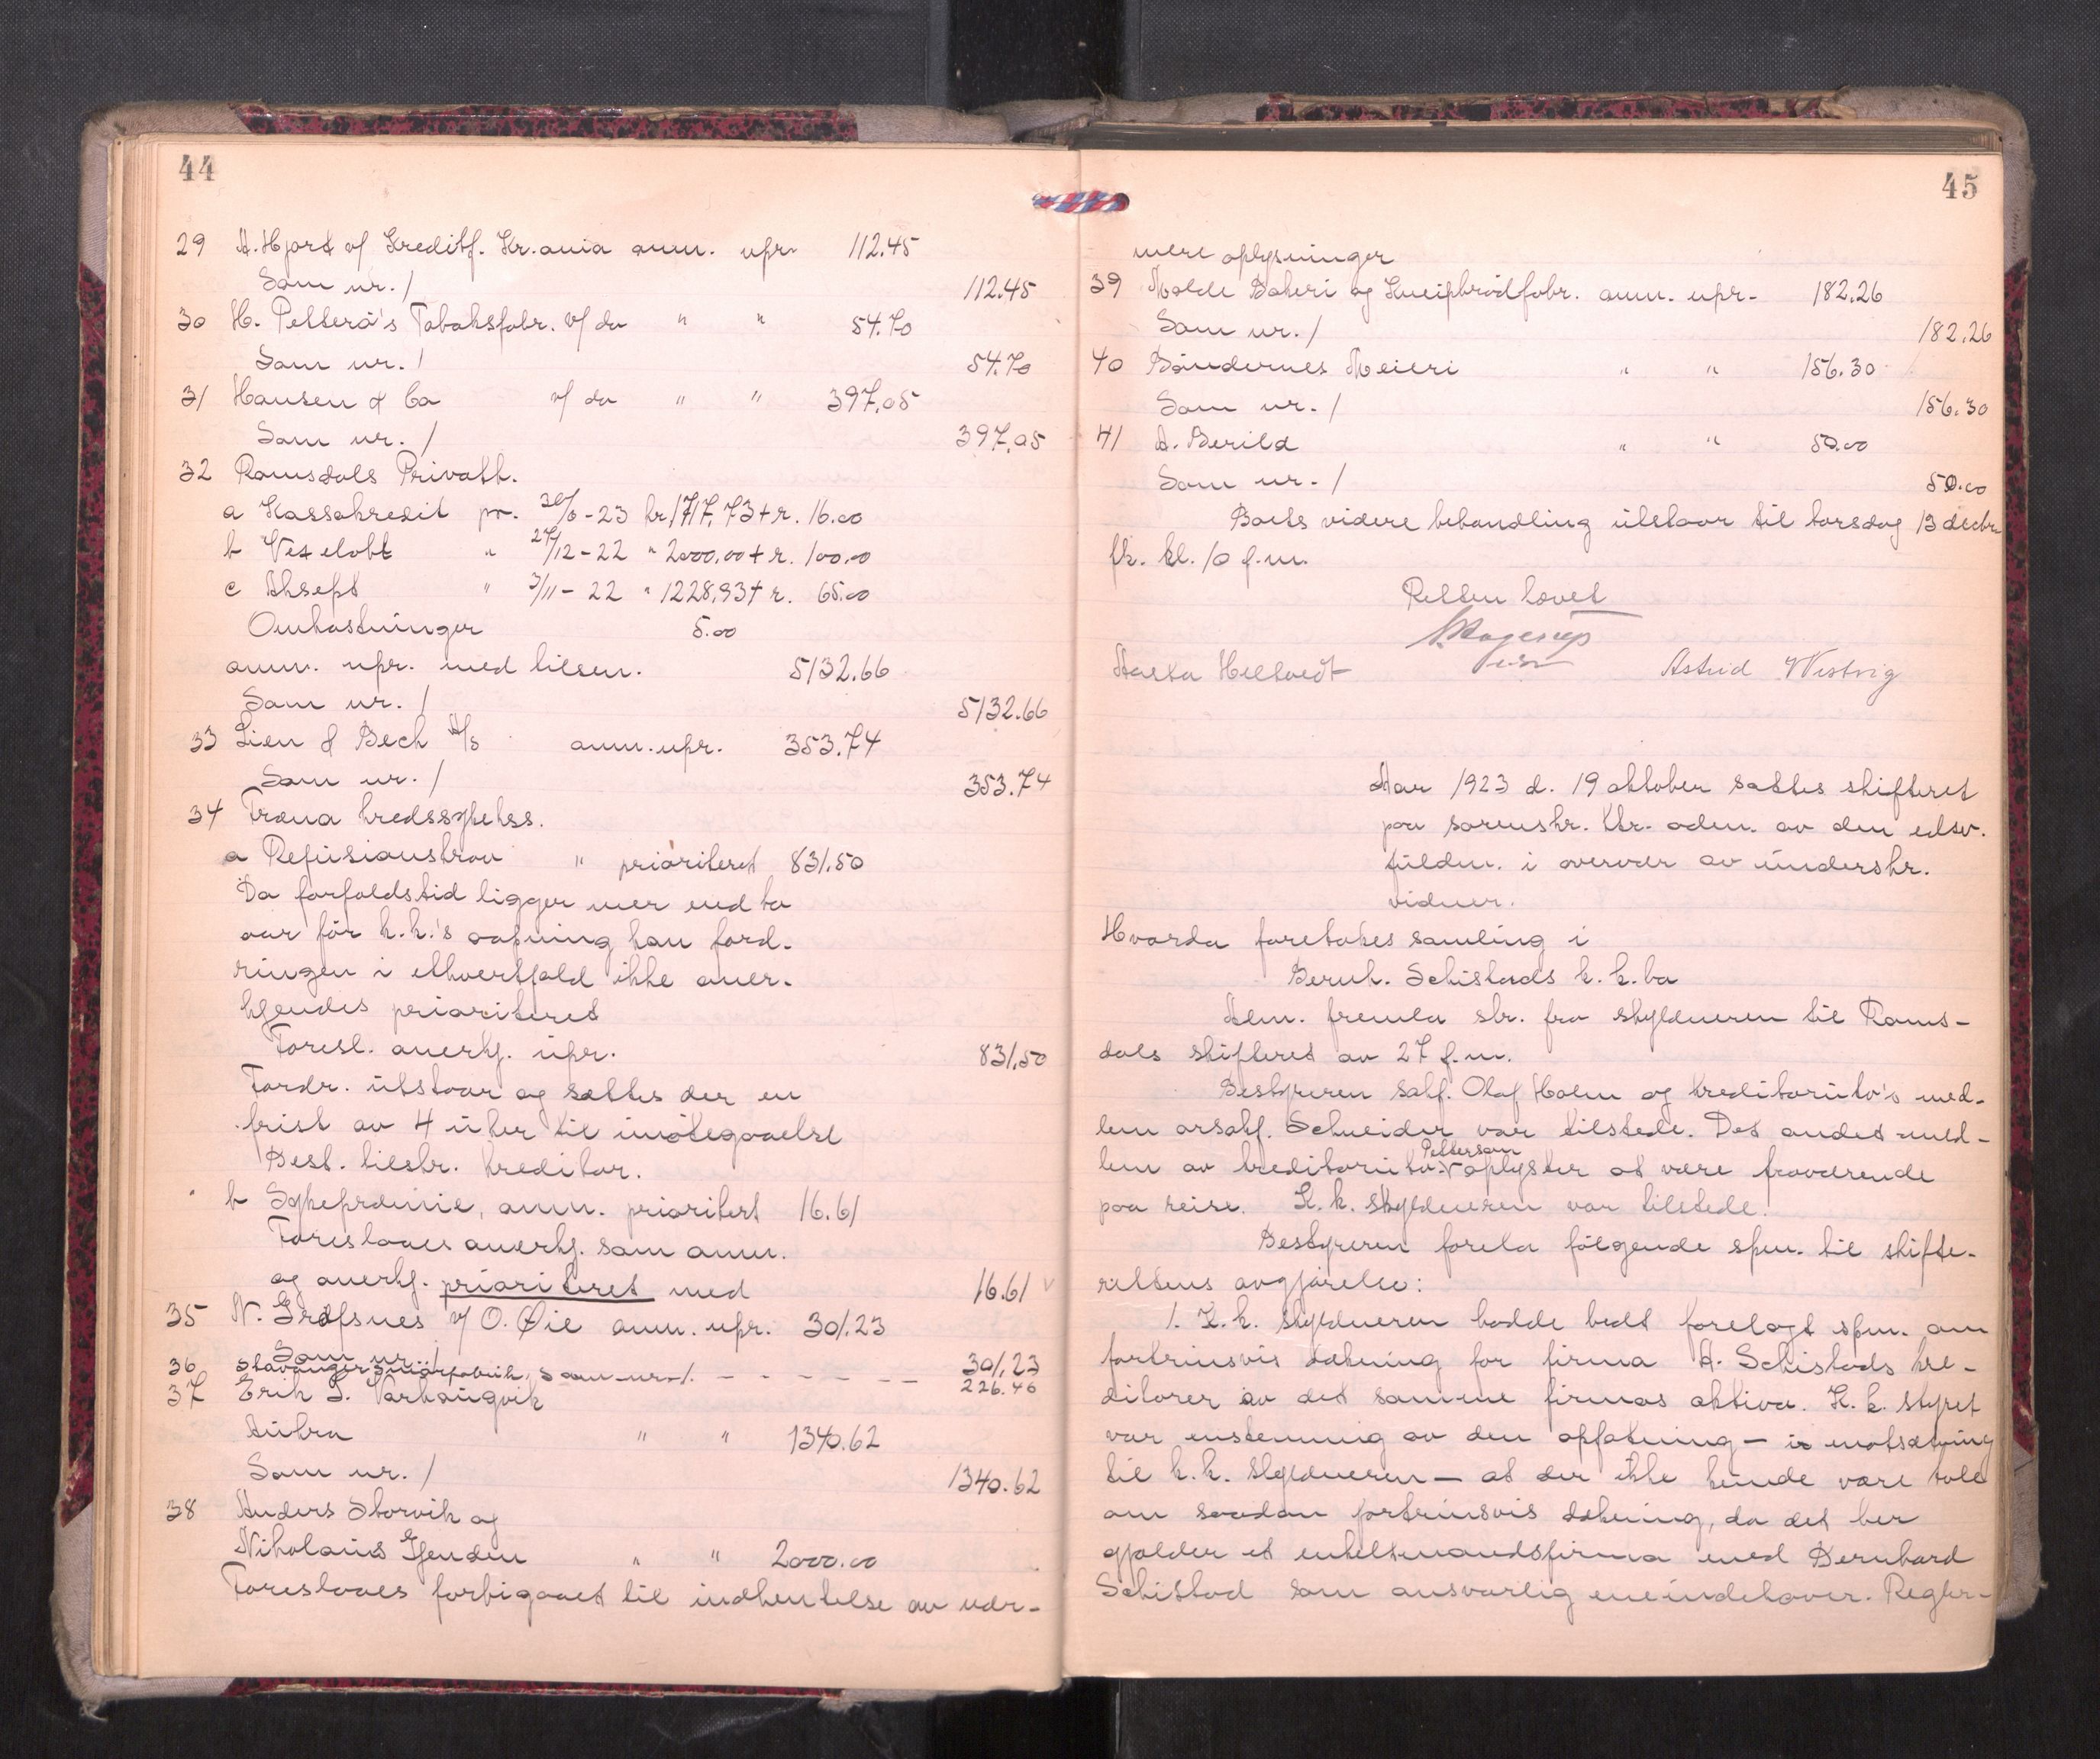 44
29 A. Hjort v/ Kreditf. Kr.ania anm. upr. 112.45
Som nr. 1 112.45
30 H. Petterö's Tobaksfabr. v/ do " " 54.70
Som nr. 1 54.70
31 Hansen & Co v/ do " " 397,05
Som nr. 1 397,05
32 Romsdals Privatb.
a Kassakredit pr. 30/6-23 kr. 1717,73 + r. 16.00
b Vexelobl " 27/12-22 " 2000,00 + r. 100.00
c Aksept " 3/11-22 " 1228,93 + r. 65.00
Omkostninger 5.00
anm. upr. med tilsen. 5132.66
Som nr. 1 5132.66
33 Lien & Bech A/S anm. upr. 353.74
Som nr. 1 353.74
34 Fræna kredssykekss.
a Refusionskrav " prioriteret 831.50
Da forfaldstid ligger mer end to
aar før k.k.'s aapning kan ford-
ringen i ethvertfald ikke aner-
kjendes prioriteret
Foresl. anerkj. upr. 831,50
Fordr. utstaar og sættes der en
frist av 4 uker til imøtegaaelse
Best. tilskr. kreditor.
b Sykepræmie, anm. prioritert 16.61
Foreslaaes anerkj. som anm.
og anerkj. prioriteret med 16.61
35 N. Gräfsnes v/ O. Øie anm. upr. 301.23
Som nr. 1 301.23
36 Stavanger Smörfabrik, Som nr. 1. - - - - - - 226.46
37 Erik L. Varhaugvik
Aukra " " 1340.62
Som nr. 1 1340.62
38 Anders Storvik og
Nikolaus Gjendem " " 2000.00
Foreslaaes forbigaaet til indhentelse av nær-
45
mere oplysninger
39 Molde Bakeri og Kneipbrødfabr. anm. upr- 182.26
Som nr. 1 182.26
40 Bøndernes Meieri " " 156.30
Som nr. 1 156.30
41 A. Berild " " 50.00
Som nr. 1 50.00
Boets videre behandling utstaar til torsdag 13 decbr
fk. kl. 10 f.m.
Retten hævet
Astrid Westvig
Aar 1923 d. 19 oktober sattes skifteret
paa sorenskr. ktr. adm. av den edsv.
fuldm. i overvær av underskr.
vidner.
Hvorda foretokes samling i
Bernh. Schistads k.k.bo
Adm. fremla skr. fra skyldneren til Roms-
dals skifteret av 27 f.m.
Bestyreren sakf. Olaf Holm og kreditorutv's med-
lem orsakf. Schneider var tilstede. Det andet med-
lem av kreditorutv. Petterson oplystes at være fraværende
paa reise. K.k. skyldneren var tilstede.
Bestyreren forela følgende spm. til skifte-
rettens avgjørelse:
1. K.k. skyldneren hadde bedt forelagt spm. om
fortrinsvis dækning for firma A. Schistads kre-
ditorer av det samme firmas aktiva. K.k. styret
var enstemmig av den opfatning – i motsætning
til k.k. skyldneren – at der ikke kunde være tale
om saadan fortrinsvis dækning, da det her
gjælder et enkeltmandsfirma med Bernhard
Schistad som ansvarlig eneindehaver. Regler-